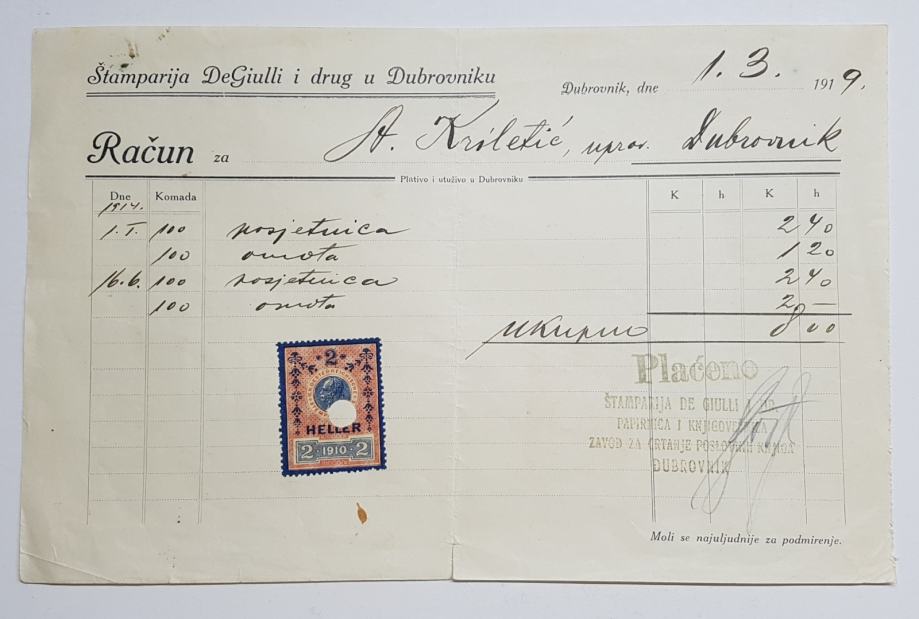 Štamparija DeGiulli i drug u Dubrovniku
Dubrovnik, dne 1. 3. 1919.
Račun za St. Kriletić, uprav. Dubrovnik
Plativo i utuživo u Dubrovniku
Dne Komada K h K h
1914.
1. I. 100 posjetnica 2 40
100 omota 1 20
16. 6. 100 posjetnica 2 40
100 omota 2 —
ukupno 8 00
2
HELLER
2 1910 2
Plaćeno
ŠTAMPARIJA DE GIULLI I DR.
PAPIRNICA I KNJIGOVEŽNICA
ZAVOD ZA CRTANJE POSLOVNIH KNJIGA
DUBROVNIK
Moli se najuljudnije za podmirenje.